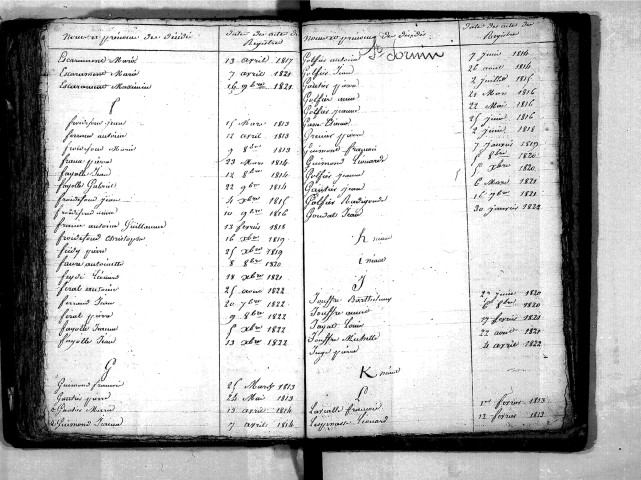 Noms et prénoms des décédés Date des actes des Registres
Escarment Marie 13 avril 1817
Escarment Marie 7 avril 1821
16 9bre 1821
f
froidefond jean 15 Mars 1813
ferrou antoine 12 avril 1813
froidefond Marie 9 8bre 1813
franc pierre 23 Mars 1814
fayolle Jean 12 8bre 1814
fayolle Gabriel 22 9bre 1814
froidefond jean 4 xbre 1815
froidefond anne 10 9bre 1816
franc antoine Guillaume 13 fevrier 1818
froidefond Christophe 16 xbre 1819
feidy pierre 25 xbre 1819
faure antoinette 8 8bre 1820
feydi Léonard 18 xbre 1821
feral antoine 25 aout 1822
ferrand Jean 20 7bre 1822
feral pierre 9 8bre 1822
fayolle Jeanne 5 xbre 1822
fayolle Jean 13 xbre 1822
G
Guimond francois 25 Mars 1813
Gautier pierre 24 Mai 1813
Gautier Marie 13 avril 1814
Guimond Jeanne 7 avril 1814
Noms et prénoms des décédés Date des actes des Registres
St Sornin
Golfier antoine 7 Juin 1814
Golfier Jean 26 aout 1814
Gautier pierre 2 Juillet 1815
Golfier anne 21 Mars 1816
Golfier jeanne 22 Mai 1816
25 Juin 1816
Grenier pierre 2 Juin 1818
Guimond François 7 Janvier 1819
Guimond Léonarde 5 8bre 1820
Golfier jeanne 5 xbre 1820
Gautier jean 6 Mars 1821
Golfier Radegonde 16 9bre 1821
Goudal Jean 30 janvier 1822
h néant
i néant
J
Jouffre Barthelemy 27 Juin 1820
Jouffre anne 6 8bre 1820
Jayat Louis 17 fevrier 1821
Jouffre Michelle 22 aout 1821
Juge pierre 4 avril 1822
K néant
L
Lascaille françois 1er fevrier 1813
Lespinasse Léonard 12 fevrier 1813